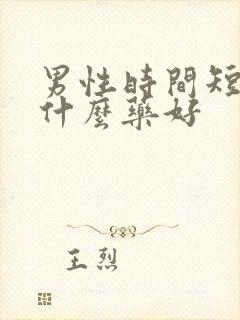 男性時間短
什麼藥好
王烈